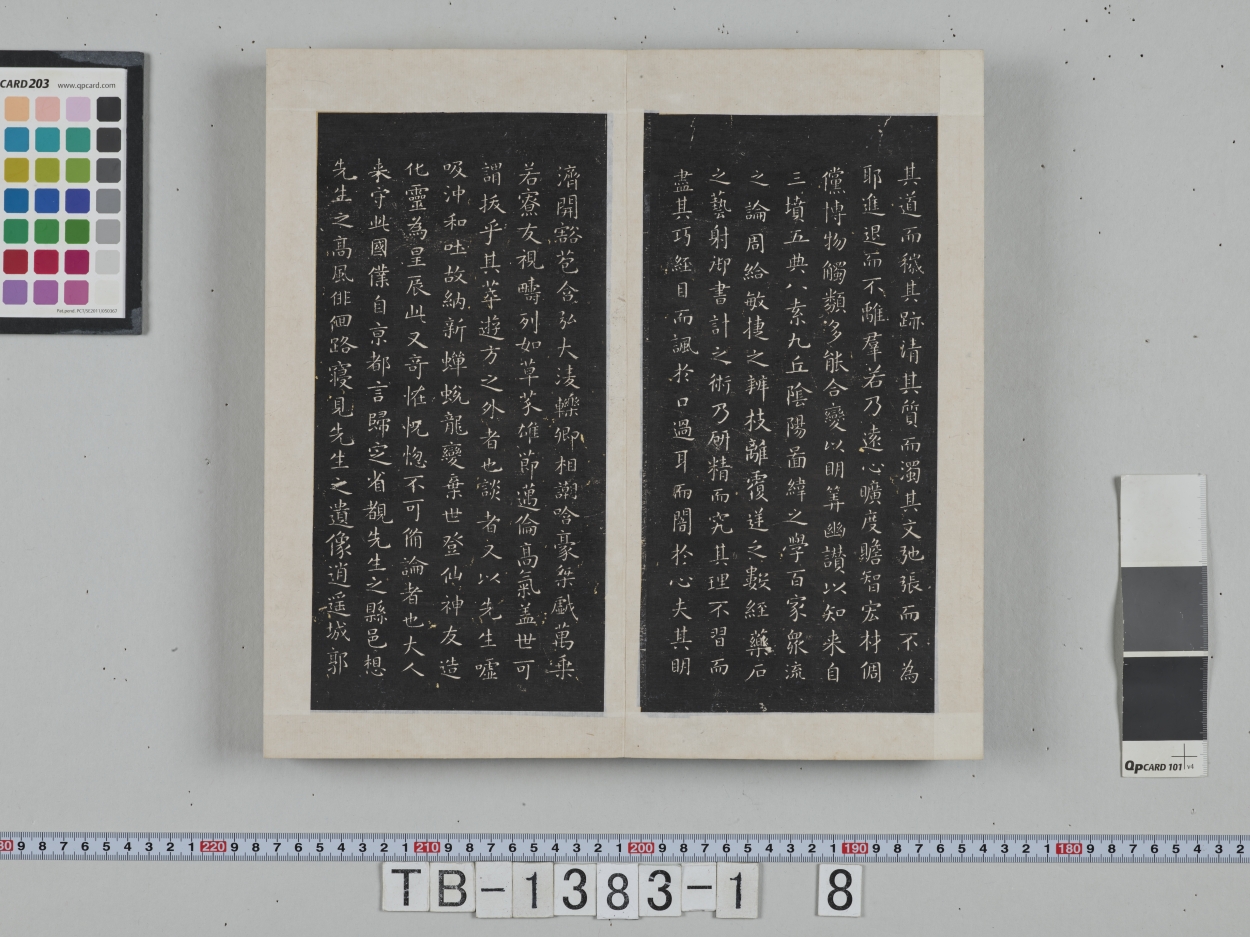 其道而穢其跡清其質而濁其文弛張而不為
耶進退而不離羣若乃遠心曠度贍智宏材倜
儻博物觸類多能合變以明筭幽讃以知来自
三墳五典八索九丘陰陽啚緯之學百家衆流
之論周給敏捷之辨枝離覆逆之數經藥石
之藝射御書計之術乃研精而究其理不習而
盡其巧經目而諷於口過耳而闇於心夫其明
濟開豁苞含弘大淩轢卿相謿哈豪桀戲萬乗
若寮友視疇列如草芥雄節邁倫髙氣盖世可
謂拔乎其萃遊方之外者也談者又以先生噓
吸沖和吐故納新蟬蛻龍變棄世登仙神友造
化靈為星辰此又奇恠怳惚不可俻論者也大人
来守此國僕自京都言歸定省覩先生之縣邑想
先生之髙風俳佪路寢見先生之遺像逍遥城郭
CARD203 www.qpcard.com
QPCARD 101 v4
30 9 8 7 6 5 4 3 2 1 220 9 8 7 6 5 4 3 2 1 210 9 8 7 6 5 4 3 2 1 200 9 8 7 6 5 4 3 2 1 190 9 8 7 6 5 4 3 2 1 180 9 8 7 6 5 4 3 2
TB-1383-1 8